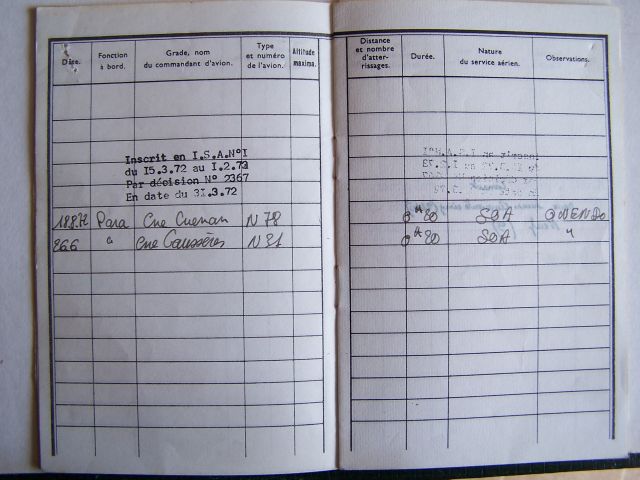 Date.
Fonction
à bord.
Grade, nom
du commandant d'avion.
Type
et numéro
de l'avion.
Altitude
maxima.
Inscrit en I.S.A.N°I
du I5.3.72 au I.2.73
Par décision N° 2367
En date du 3I.3.72
18.8.72 Para Cne Cuenan N 78
" Cne Gaussères N 81
Distance
et nombre
d'atter-
rissages.
Durée.
Nature
du service aérien.
Observations.
0H20 SOA OWENDO
0H20 SOA "